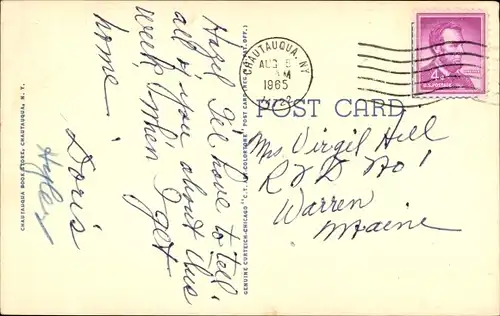 Hazel I'll have to tell
all of you about this
week, when I get
home.
Doris
CHAUTAUQUA BOOK STORE, CHAUTAUQUA, N. Y.
GENUINE CURTEICH-CHICAGO "C.T. ART-COLORTONE" POST CARD (REG. U.S. PAT. OFF.)
CHAUTAUQUA, NY
AUG 5
AM
1965
4¢
U.S. POSTAGE
POST CARD
Mrs Virgil Hill
RFD No 1
Warren
Maine